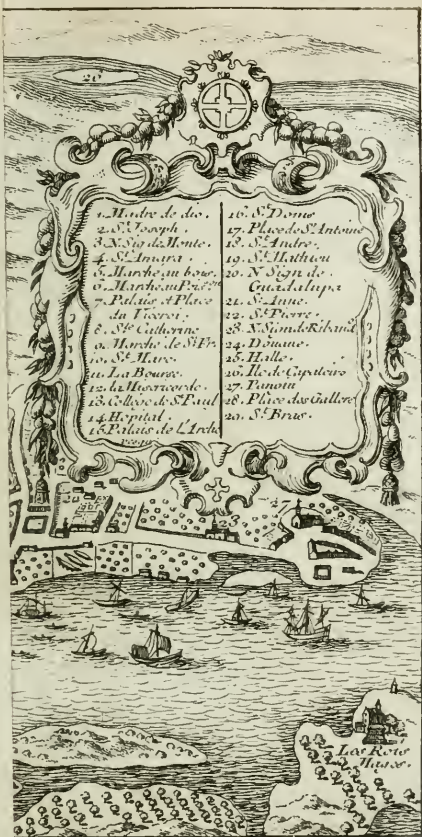 29
1. Madre de dio.
2. St. Joseph.
3. N. Sig de Monte.
4. St. Amara.
5. Marche au bous.
6. Marche au
7. Palais et Place
du Viceroi.
8. Ste. Catherine
9. Marche de St. Fr.
10. St. Marc.
11. La Bourse.
12. la Misericorde.
13. College de St. Paul
14. Hopital.
15. Palais de l'Arche
16. St. Domo
17. Place de St. Antoine
18. St. Andre.
19. St. Mathieu
20. N Sign de
Guadalupa
21. St. Anne.
22. St. Pierre.
23. N. Sign de Riband
24. Douane.
25. Halle.
26. Ile de Capitciro
27. Panoiu
28. Place das Gallere
29. St. Bras.
23
Los Reis
Magos.